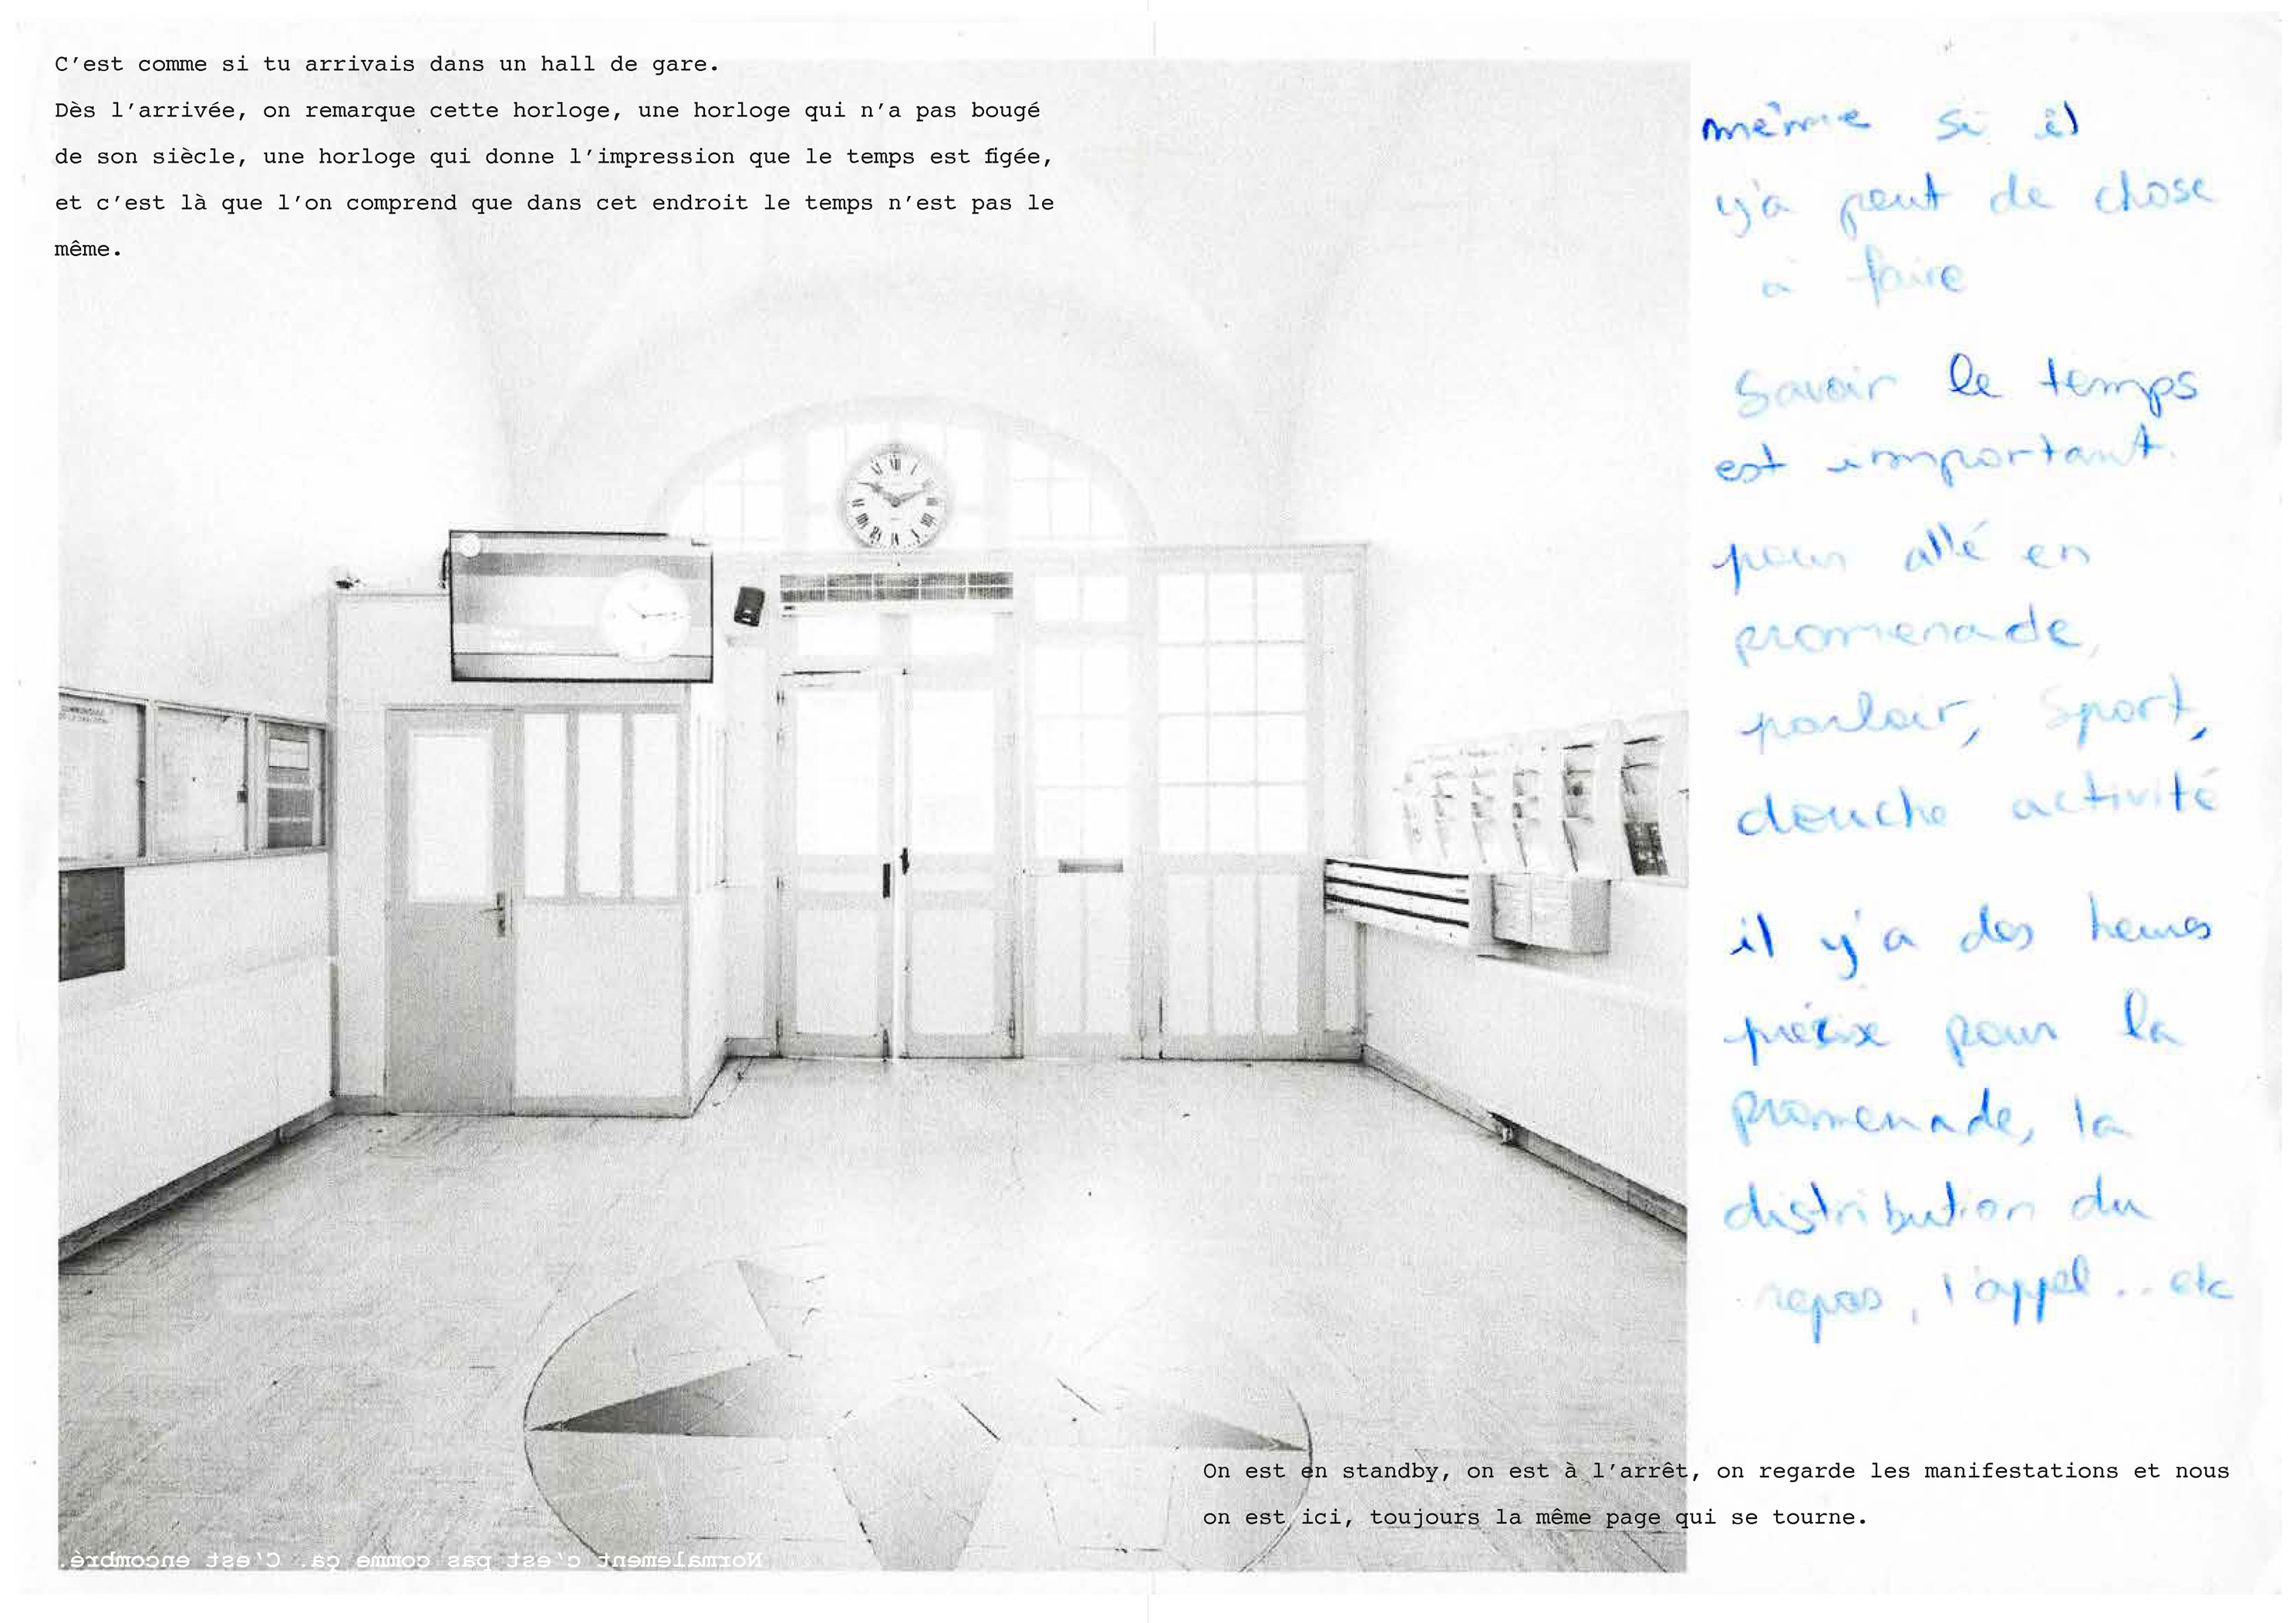 C'est comme si tu arrivais dans un hall de gare.
Dès l'arrivée, on remarque cette horloge, une horloge qui n'a pas bougé
de son siècle, une horloge qui donne l'impression que le temps est figée,
et c'est là que l'on comprend que dans cet endroit le temps n'est pas le
même.
même si il
y'a peut de chose
à faire
Savoir le temps
est important.
pour allé en
promenade,
parloir, Sport,
douche activité
il y'a des heures
précise pour la
promenade, la
distribution du
repas, l'appel.. etc
On est en standby, on est à l'arrêt, on regarde les manifestations et nous
on est ici, toujours la même page qui se tourne.
Normalement c'est pas comme ça. C'est encombré.